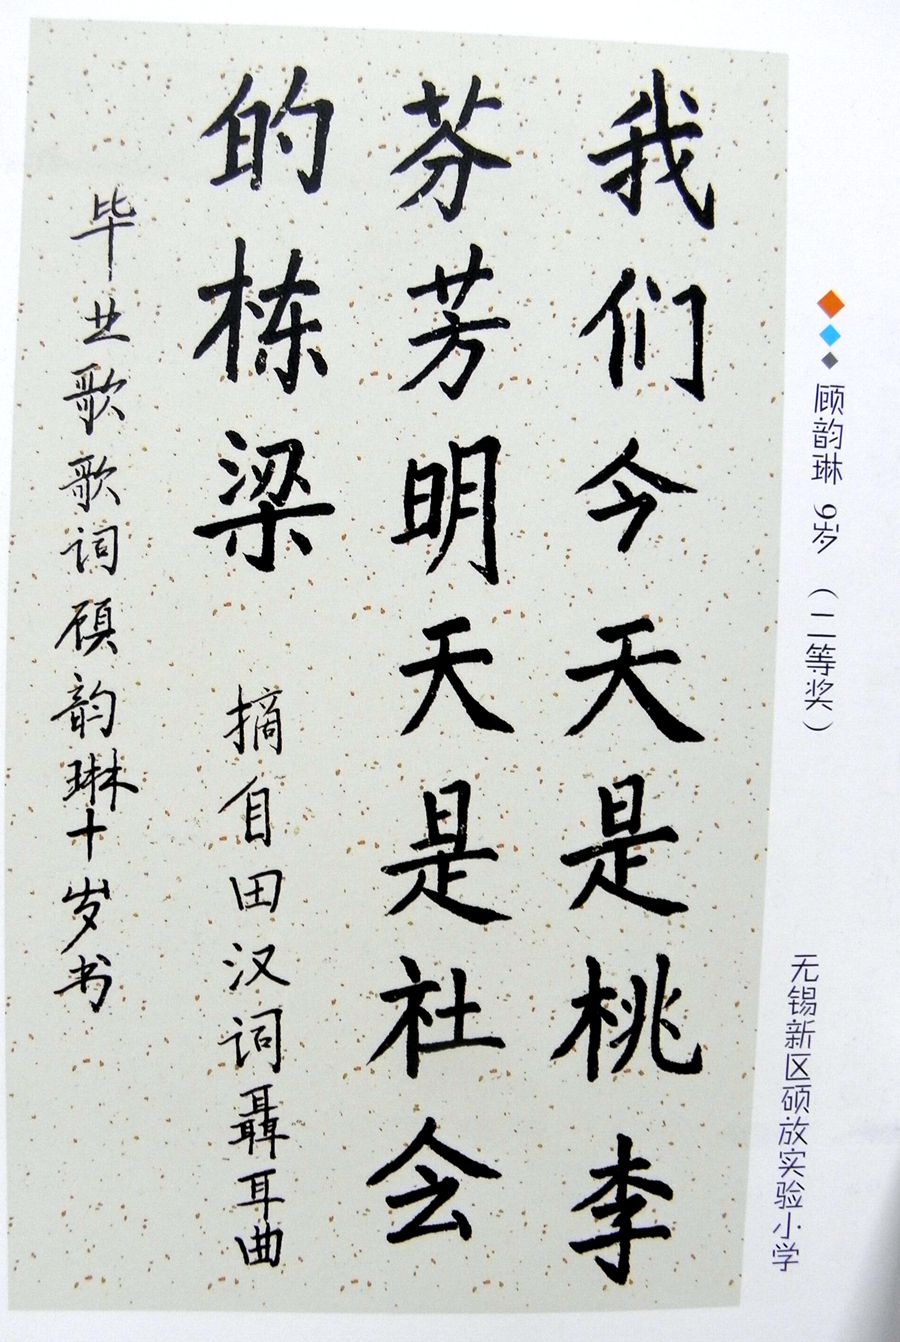 我们今天是桃李
芬芳明天是社会
的栋梁 摘自田汉词聂耳曲
毕业歌歌词顾韵琳十岁书
顾韵琳 9岁 （二等奖）
无锡新区硕放实验小学